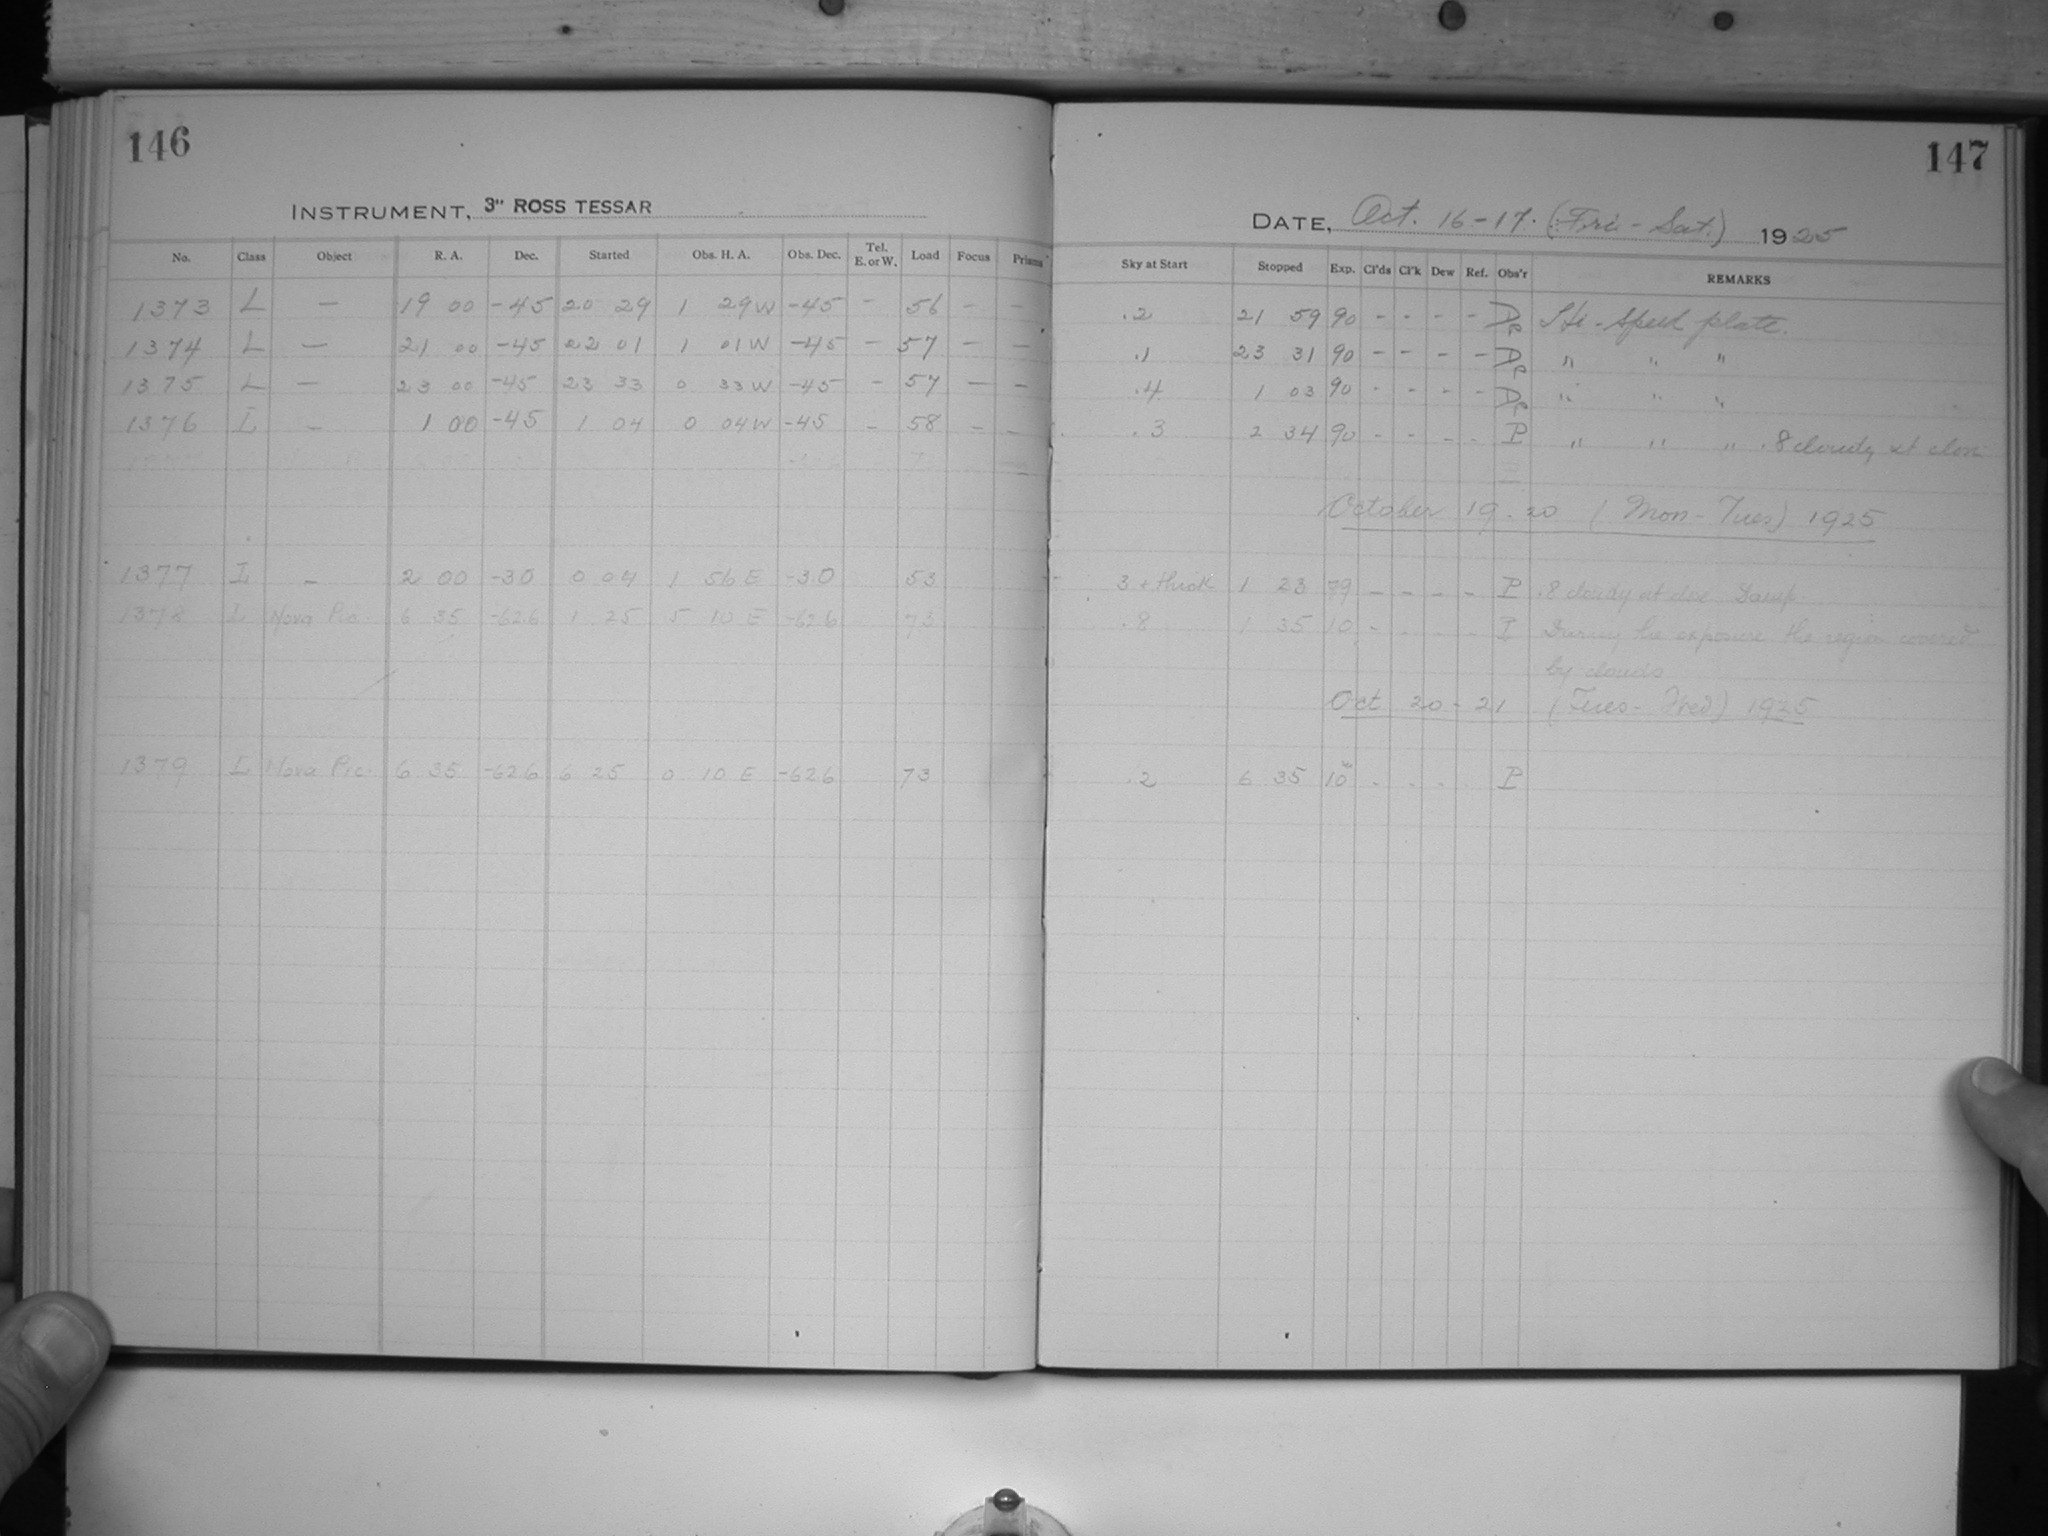 146
INSTRUMENT, 3" ROSS TESSAR
No. Class Object R. A. Dec. Started Obs. H. A. Obs. Dec. Tel. E. or W. Load Focus Prisms
1373 L — 19 00 -45 20 29 1 29 W -45 - 56 - -
1374 L — 21 00 -45 22 01 1 01 W -45 - 57 - -
1375 L — 23 00 -45 23 33 0 33 W -45 - 57 - -
1376 L - 1 00 -45 1 04 0 04 W -45 - 58 - -
1377 L - 2 00 -30 0 04 1 56 E -30 53
1378 L Nova Pic. 6 35 -62.6 1 25 5 10 E -62.6 73
1379 L Nova Pic. 6 35 -62.6 6 25 0 10 E -62.6 73
147
DATE, Oct. 16-17. (Fri - Sat.) 1925
Sky at Start Stopped Exp. Cl'ds Cl'k Dew Ref. Obs'r REMARKS
.2 21 59 90 - - - - Hi-Speed plate.
.1 23 31 90 - - - - " " "
.4 1 03 90 - - - - " " "
.3 2 34 90 - - - - P " " " .8 cloudy at close
October 19.20 (Mon-Tues) 1925
3 + thick 1 23 79 - - - - P .8 cloudy at close
.8 1 35 10 - - - - During the exposure the region covered
by clouds
Oct 20-21 (Tues-Wed) 1925
.2 6 35 10 - - - P